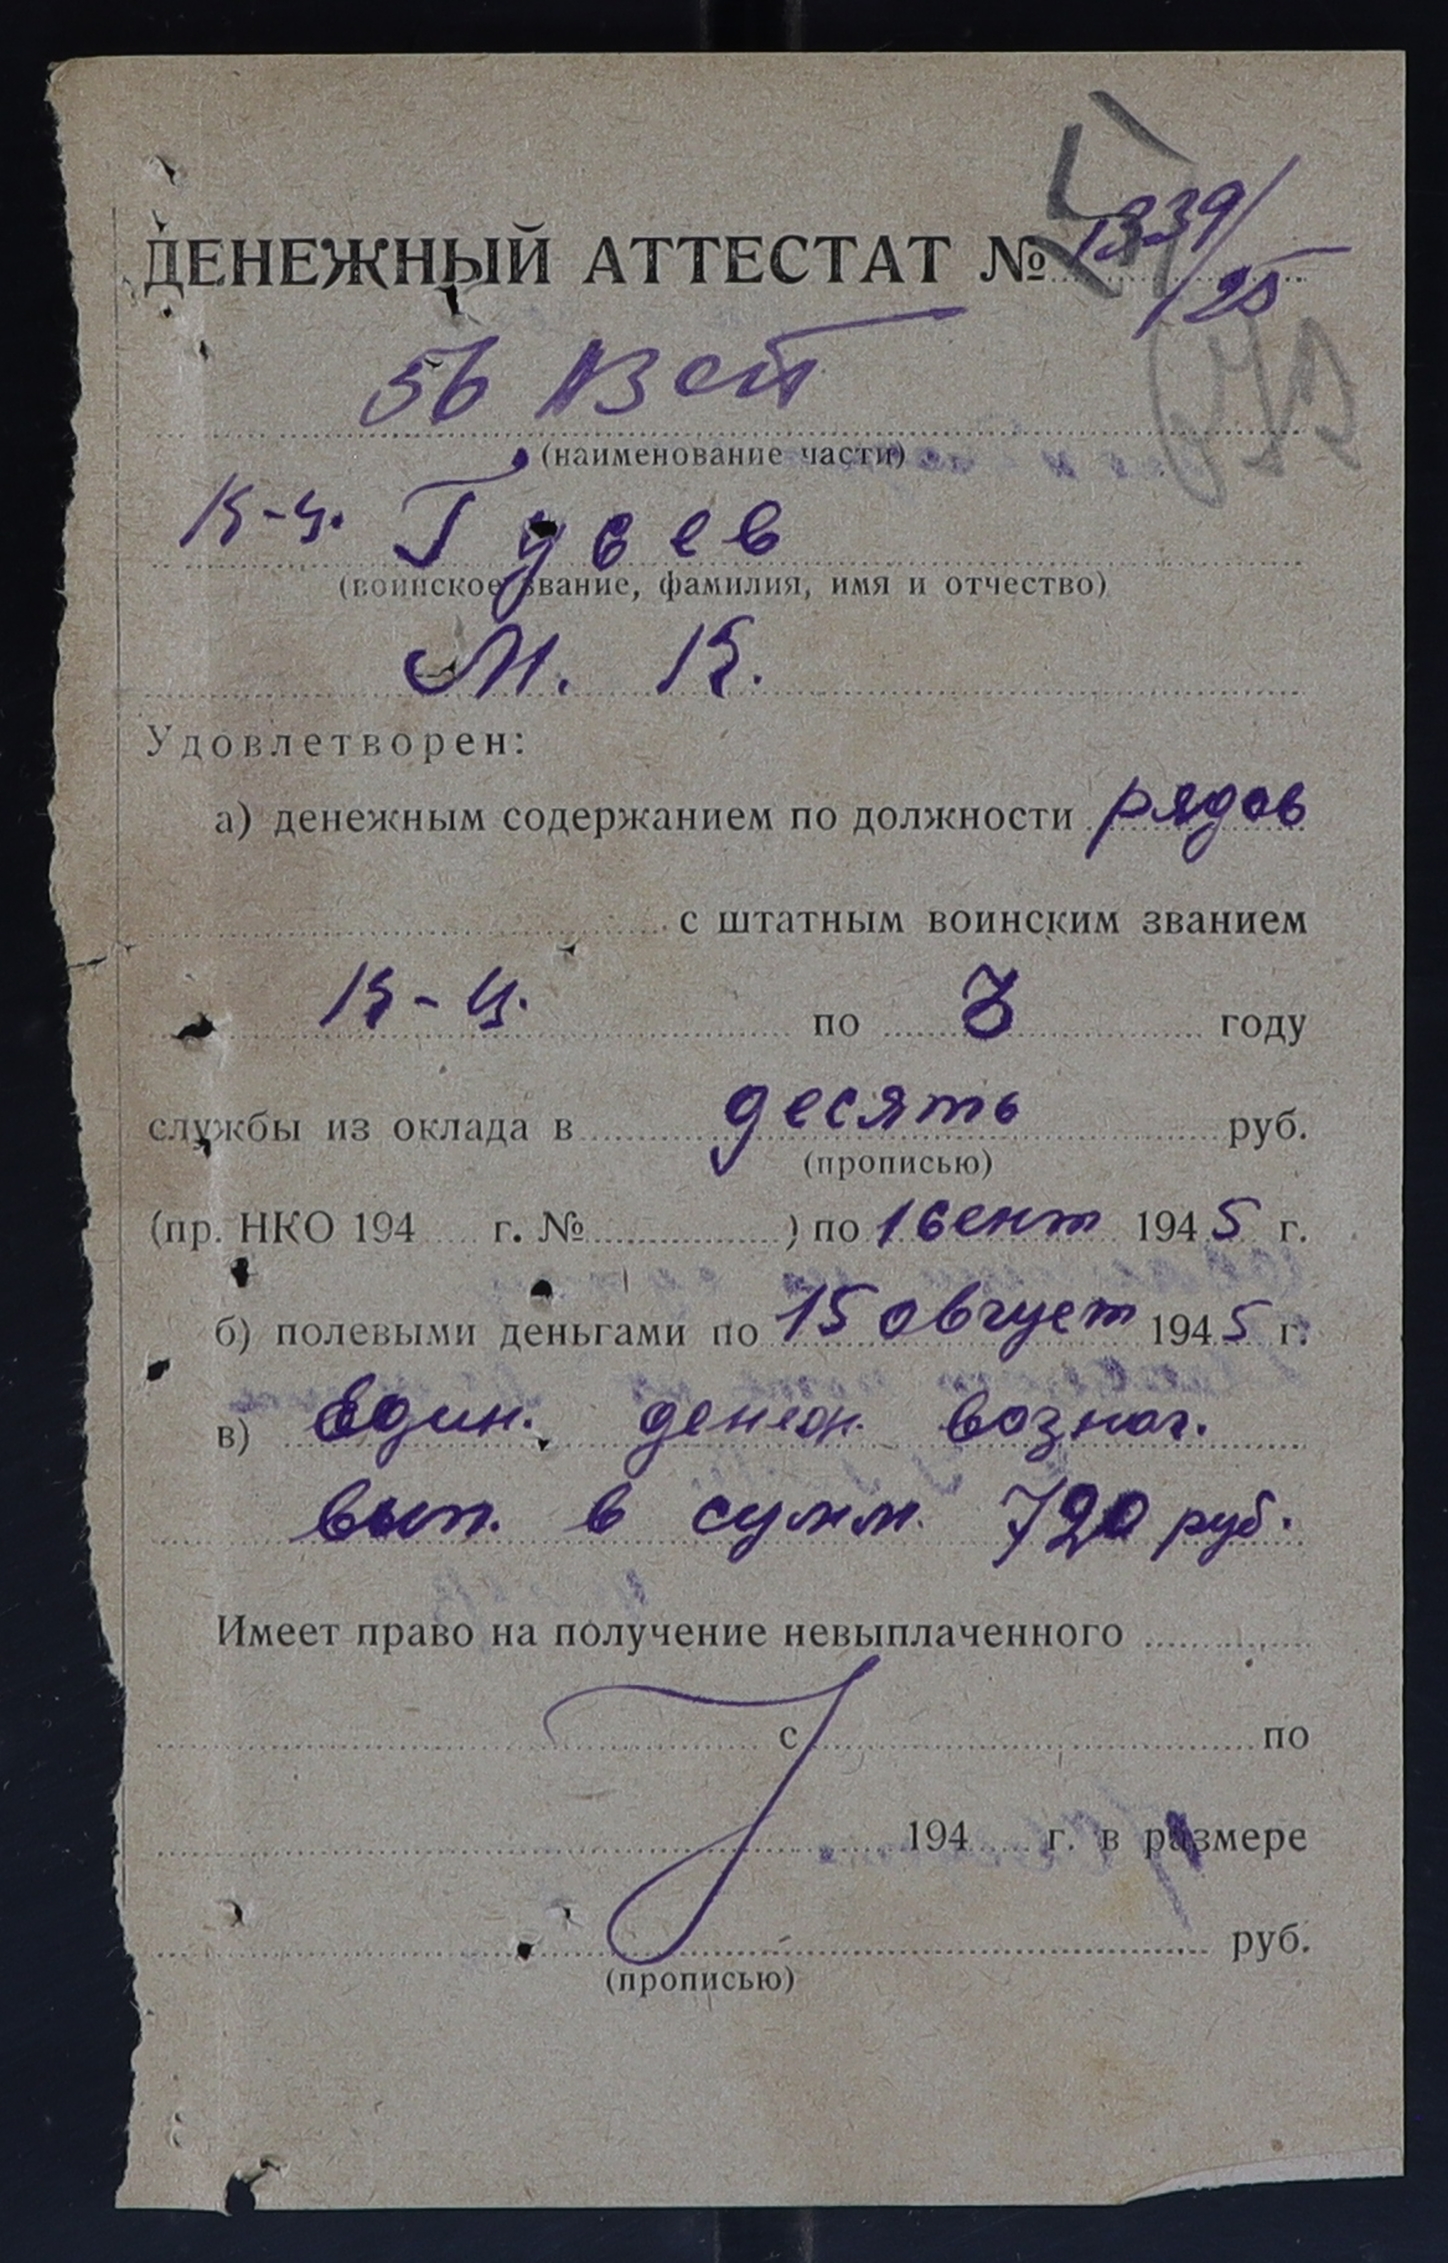 ДЕНЕЖНЫЙ АТТЕСТАТ № 1339/25
56
(наименование части)
К-ц. Гусев
(воинское звание, фамилия, имя и отчество)
М. К.
Удовлетворен:
а) денежным содержанием по должности рядов
с штатным воинским званием
К-ц. по 3 году
службы из оклада в десять руб.
(прописью)
(пр. НКО 194 г. № ) по 1 сент 1945 г.
б) полевыми деньгами по 15 август 1945 г.
в) Един. денеж. вознаг.
вып. в сумм. 720 руб.
Имеет право на получение невыплаченного
с по
194 г. в размере
руб.
(прописью)